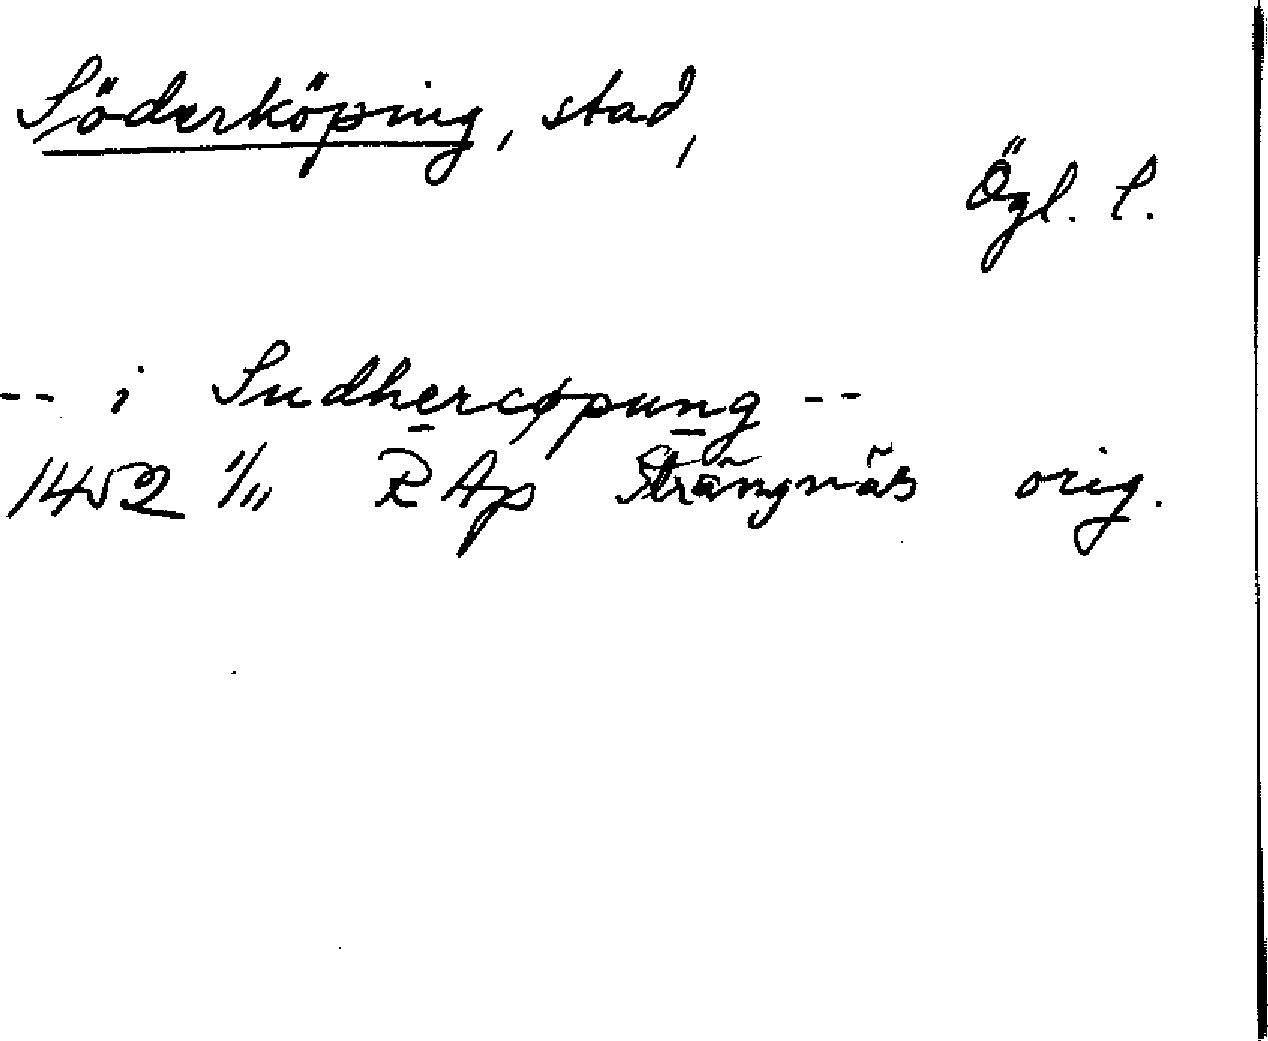 Söderköping, stad,
Ögl. l.
-- i Sudhercøpung --
1452 1/11 RAp Strängnäs orig.